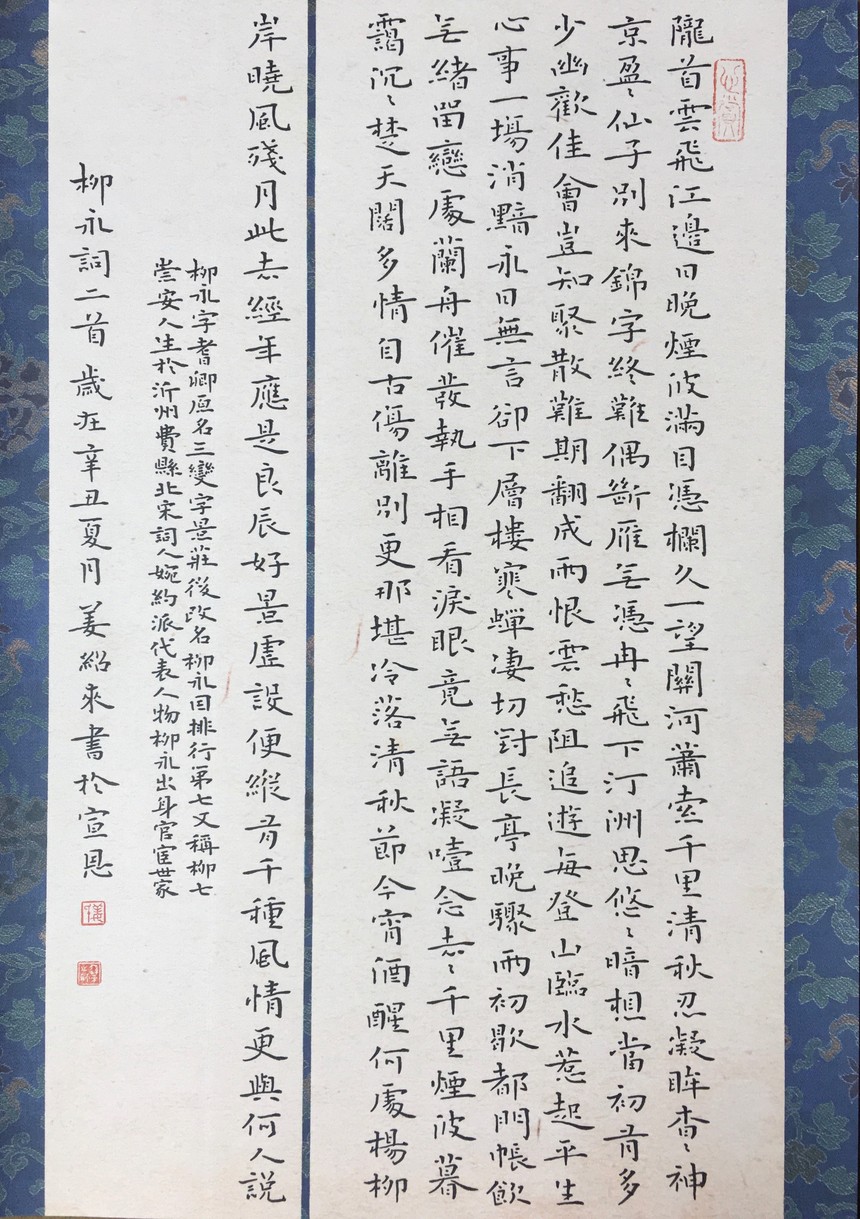 隴首雲飛江邊日晚煙波滿目憑欄久一望關河蕭索千里清秋忍凝眸杳〻神
京盈〻仙子別來錦字終難偶斷雁无憑冉〻飛下汀洲思悠〻暗想當初有多
少幽歡佳會豈知聚散難期翻成雨恨雲愁阻追遊每登山臨水惹起平生
心事一場消黯永日無言卻下層樓寒蟬淒切對長亭晚驟雨初歇都門帳飲
无緒留戀處蘭舟催發執手相看淚眼竟无語凝噎念去〻千里煙波暮
靄沉〻楚天闊多情自古傷離別更那堪冷落清秋節今宵酒醒何處楊柳
岸曉風殘月此去經年應是良辰好景虛設便縱有千種風情更與何人説
柳永字耆卿原名三變字景莊後改名柳永因排行第七又稱柳七
崇安人生於沂州費縣北宋詞人婉約派代表人物柳永出身官宦世家
柳永詞二首歲在辛丑夏月姜紹來書於宣恩